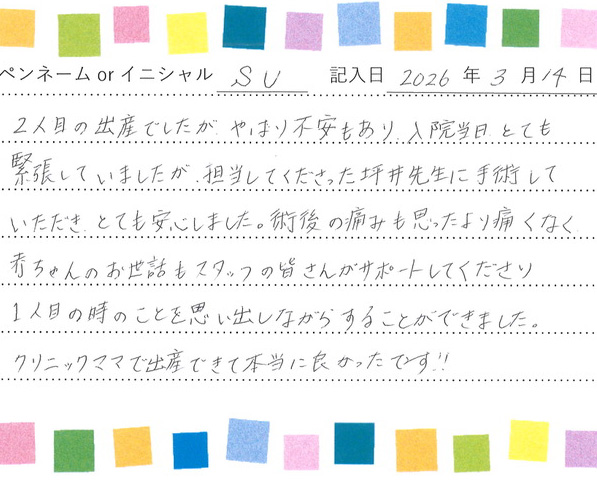 ペンネーム or イニシャル SU 記入日 2026 年 3 月 14 日
2人目の出産でしたが、やはり不安もあり、入院当日、とても
緊張していましたが、担当してくださった坪井先生に手術して
いただき、とても安心しました。術後の痛みも思ったより痛くなく、
赤ちゃんのお世話もスタッフの皆さんがサポートしてくださり
1人目の時のことを思い出しながらすることができました。
クリニックママで出産できて本当に良かったです!!